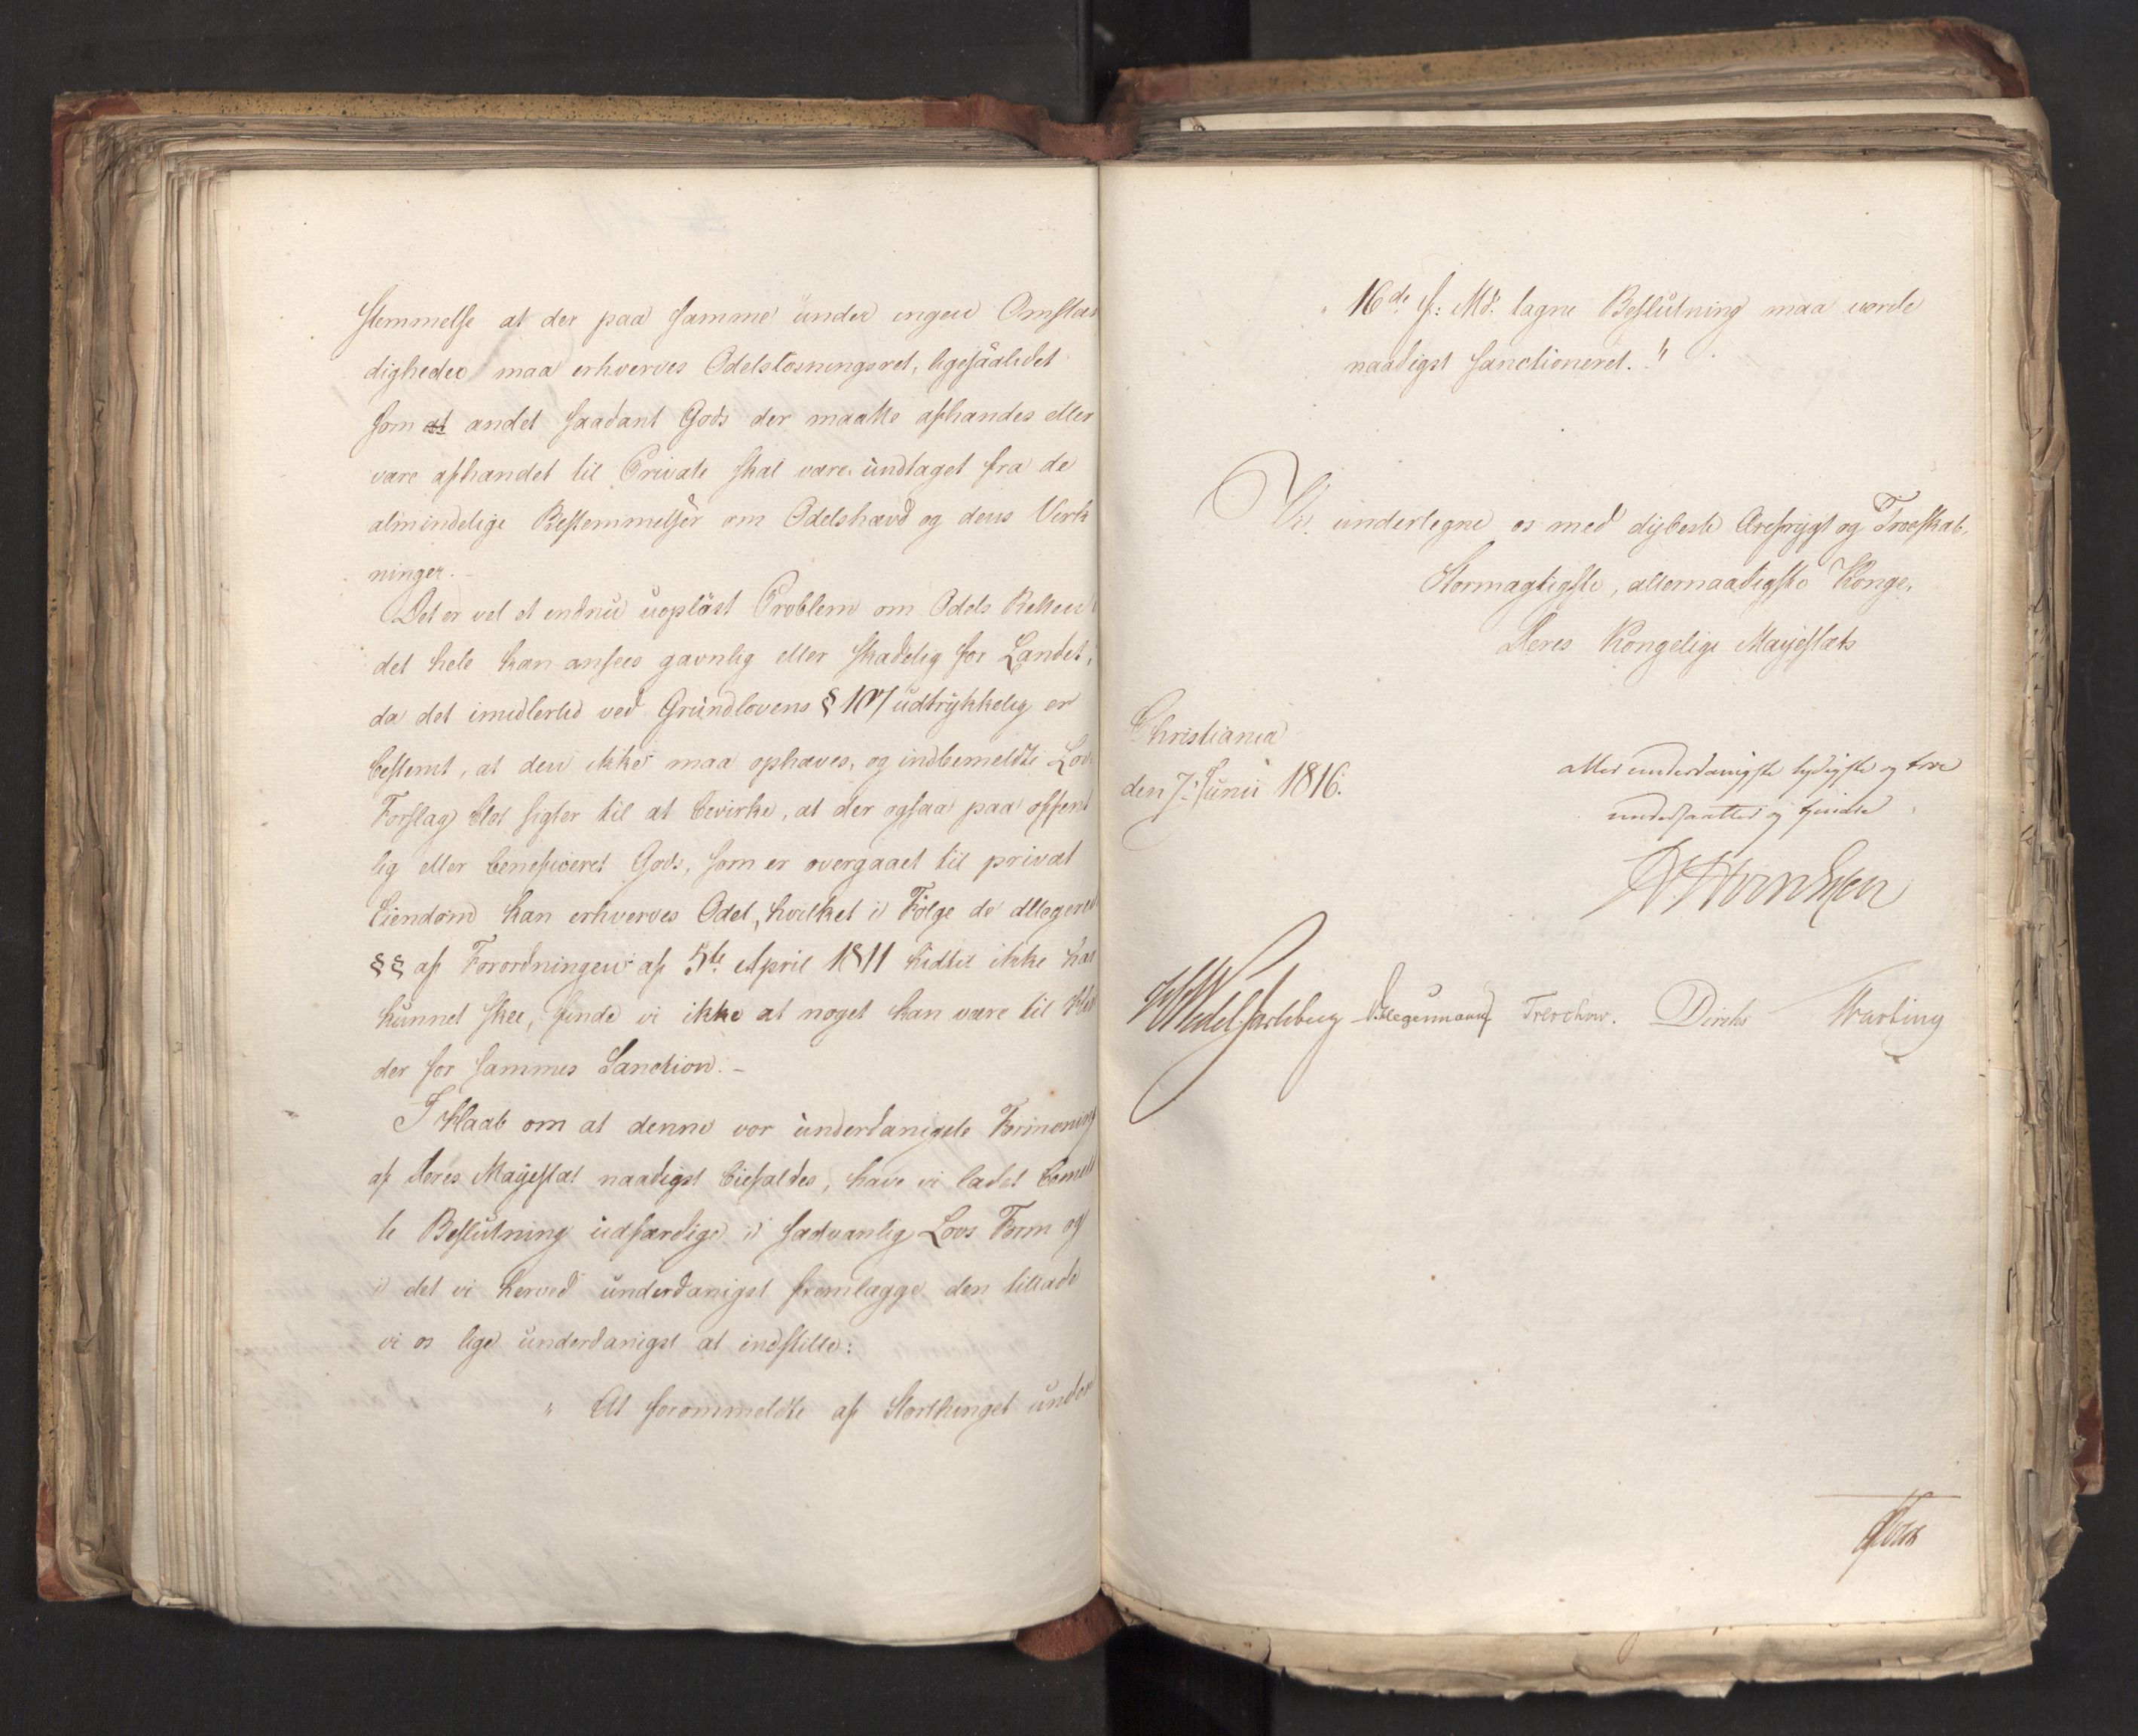 stemmelse at der paa samme under ingen Omstæn
digheder maa erhverves Odelsløsningsret, ligesaalidet
som at andet saadant Gods der maatte afhændes eller
være afhændet til Private skal være undtaget fra de
almindelige Bestemmelser om Odelshævd og dens Virk
ninger. –
Det er vel et endnu uopløst Problem om Odels Retten i
det hele kan ansees gavnlig eller skadelig for Landet,
da det imidlertid ved Grundlovens § 107 udtrykkelig er
bestemt, at den ikke maa ophæves, og indbemeldte Lov
Forslag blot sigter til at bevirke, at der ogsaa paa offent
lig eller beneficeret Gods, som er overgaaet til privat
Eiendom kan erhverves Odel, hvilket i Følge de allegerede
§§ af Forordningen af 5te April 1811 hidtil ikke har
kunnet skee, finde vi ikke at noget kan være til Hin
der for sammes Sanction. –
I Haab om at denne vor underdanigste Formening
af Deres Mayestæt naadigst biefaldes, have vi ladet bemeld
te Beslutning udfærdige i sædvanlig Lovs Form og
i det vi herved underdanigst fremlægge den tillade
vi os lige underdanigst at indstille:
" At forommeldte af Storthinget under
" 16de f: Md: tagne Beslutning maa vorde
naadigst sanctioneret. "
Vi undertegne os med dybeste Ærefrygt og Troeskab,
Stormægtigste, allernaadigste Konge,
Deres Kongelige Mayestæts
Christiania
den 7: Junii 1816.
allerunderdanigste lydigste og troe
undersaatter og tjenere
Wedel Jarlsberg Hegermann Treschow. Diriks